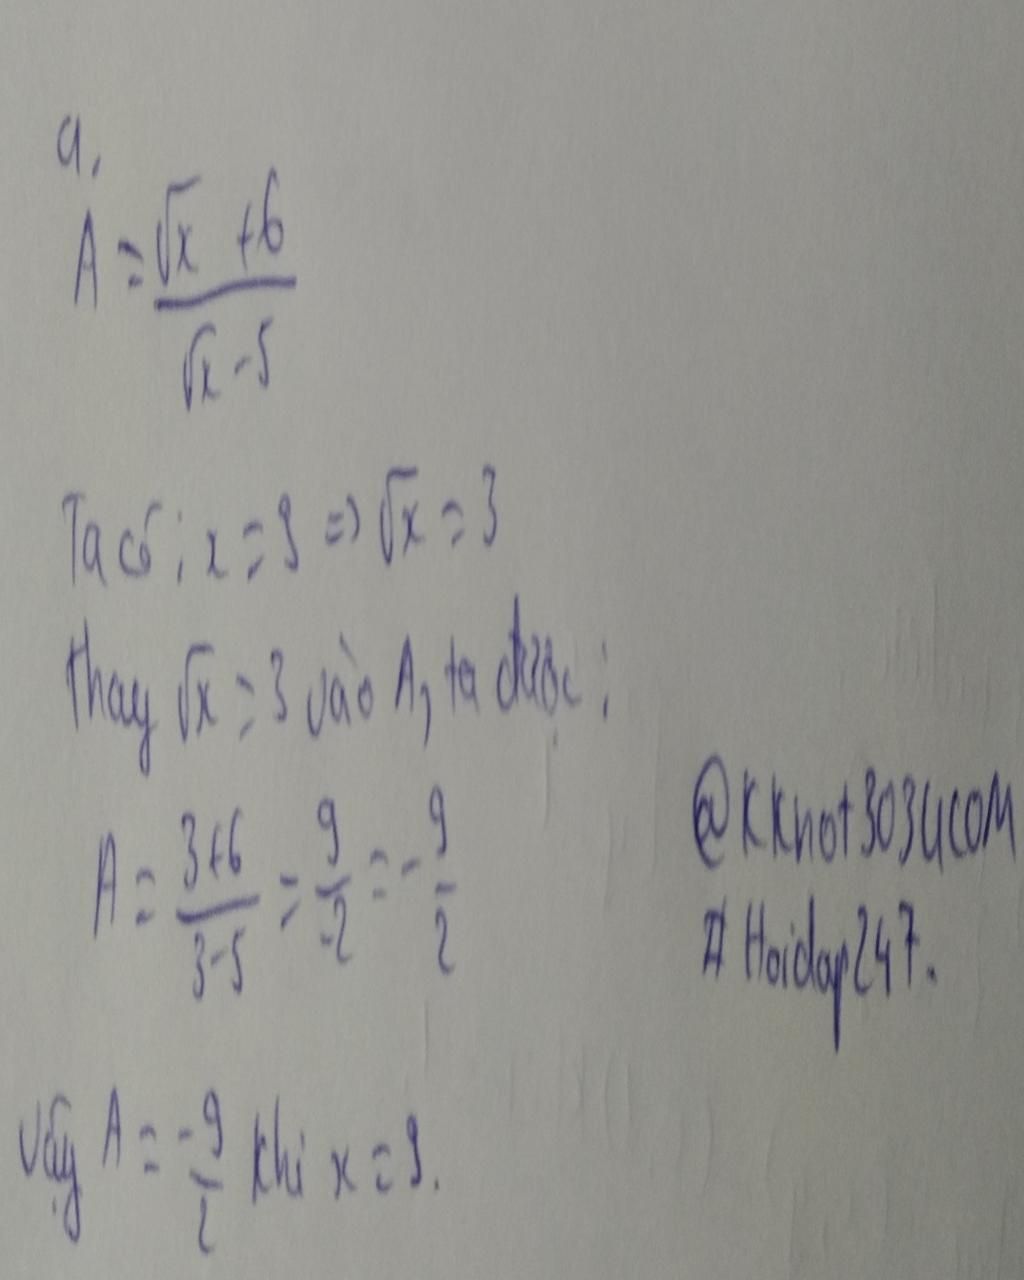 a.
A = \frac{\sqrt{x} + 6}{\sqrt{x} - 5}
Ta có : x = 9 => \sqrt{x} = 3
Thay \sqrt{x} = 3 vào A, ta được :
A = \frac{3+6}{3-5} = \frac{9}{-2} = -\frac{9}{2}
@KKnot3034COM
# Hoidap247.
Vậy A = -\frac{9}{2} khi x = 9.